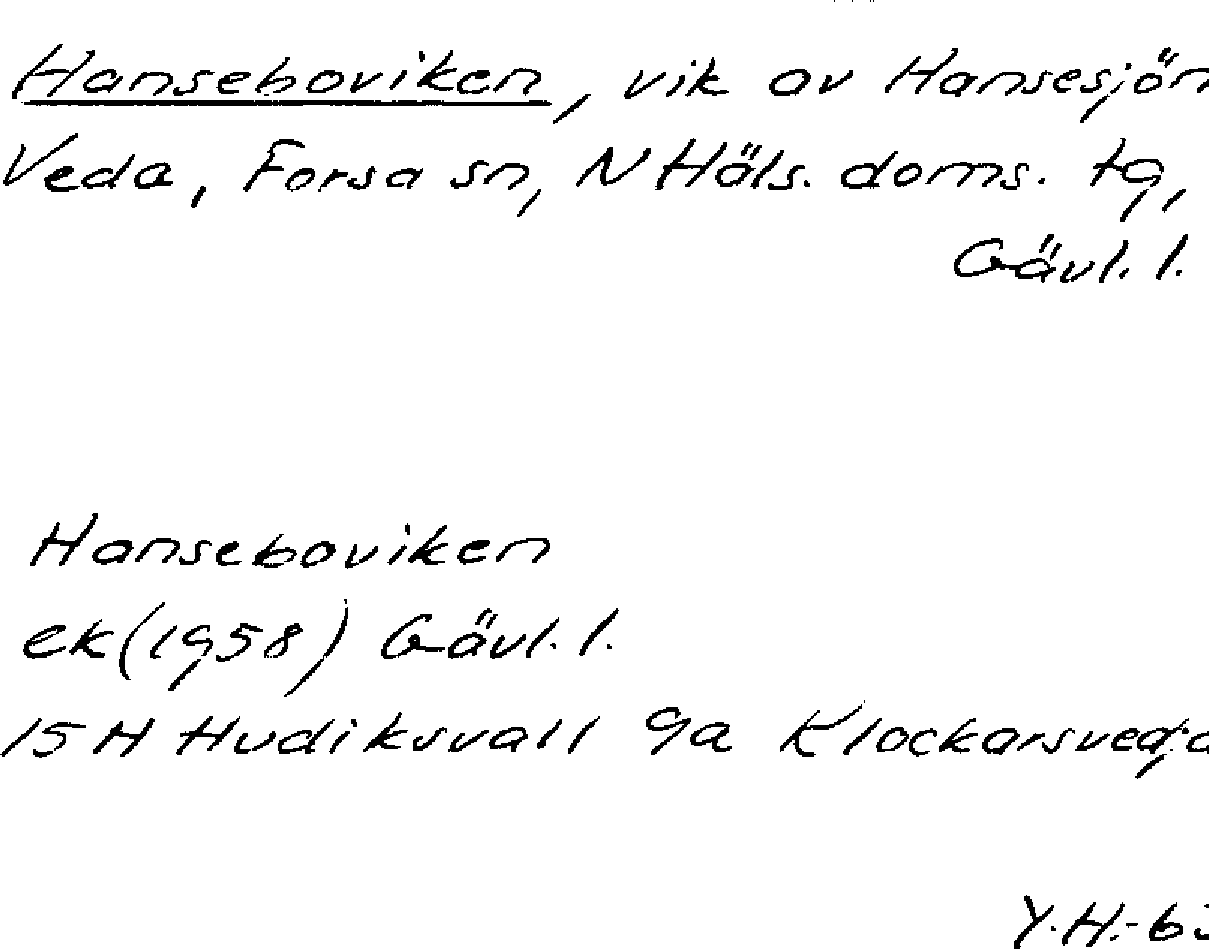 Hanseboviken, vik av Hansesjön
Veda, Forsa sn, N Häls. doms. tg,
Gävl. l.
Hanseboviken
ek (1958) Gävl. l.
15 H Hudiksvall 9a
Y.H.-